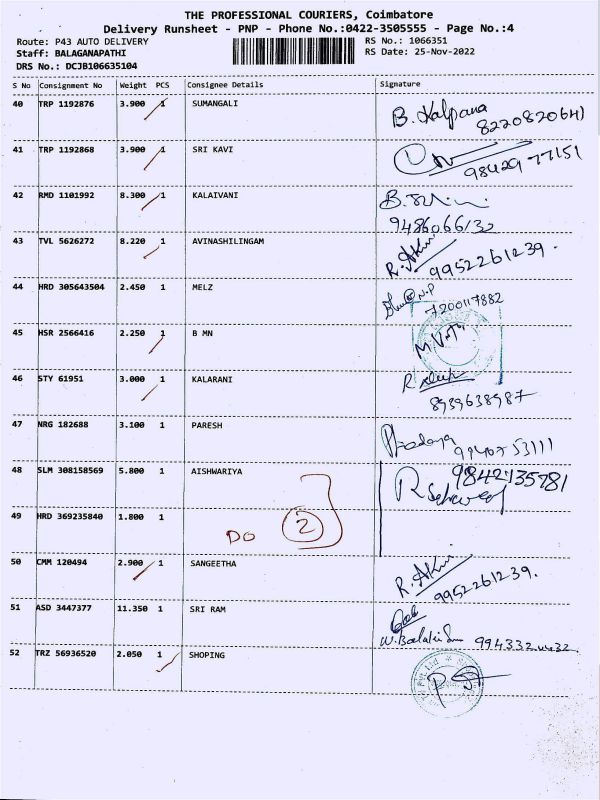 THE PROFESSIONAL COURIERS, Coimbatore
Delivery Runsheet - PNP - Phone No.:0422-3505555 - Page No.:4
Route: P43 AUTO DELIVERY
RS No.: 1066351
Staff: BALAGANAPATHI
RS Date: 25-Nov-2022
DRS No.: DCJB106635104
S No Consignment No Weight PCS Consignee Details Signature
40 TRP 1192876 3.900 1 SUMANGALI B. Kalpana
8220820641
41 TRP 1192868 3.900 1 SRI KAVI 9842977151
42 RMD 1101992 8.300 1 KALAIVANI
9486066132
43 TVL 5626272 8.220 1 AVINASHILINGAM R. 9952261239.
44 HRD 305643504 2.450 1 MELZ
7200117882
45 HSR 2566416 2.250 1 B MN
46 STY 61951 3.000 1 KALARANI
8939638987
47 NRG 182688 3.100 1 PARESH
48 SLM 308158569 5.800 1 AISHWARIYA 9842135781
49 HRD 369235840 1.800 1
DO 2
50 CMM 120494 2.900 1 SANGEETHA R. 9952261239.
51 ASD 3447377 11.350 1 SRI RAM
52 TRZ 56936520 2.050 1 SHOPING